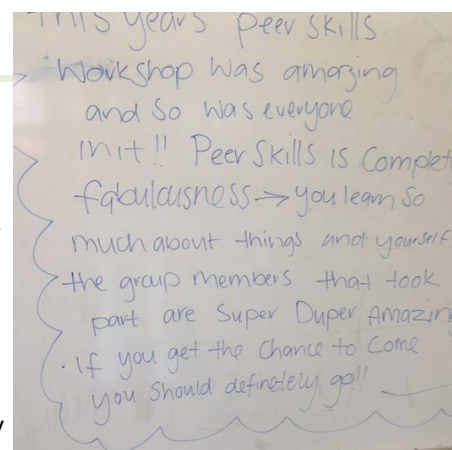 This years Peer Skills
Workshop was amazing
and so was everyone
in it!! Peer Skills is Complet
fabulousness → you learn so
much about things and yourself
the group members that took
part are Super Duper Amazin
. If you get the Chance to Come
you Should definetely go!!